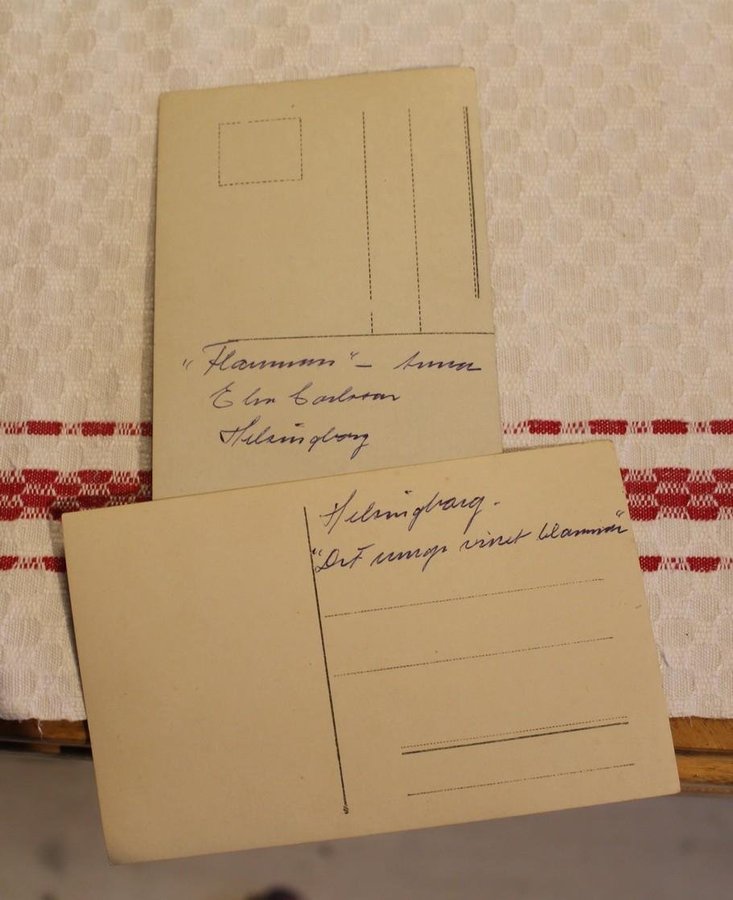 "Flamman" – Anna
Elsa Carlsson
Helsingborg
Helsingborg.
"Det unga vinet blommar"